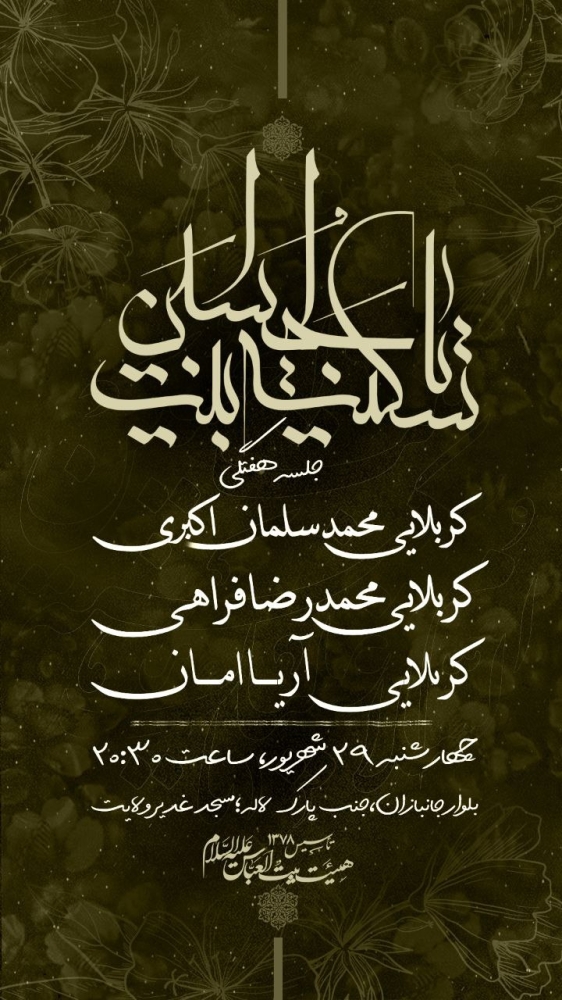 جلسه هفتگی
کربلایی محمد سلمان اکبری
کربلایی محمدرضا فراهی
کربلایی آریا امان
چهارشنبه ۲۹ شهریور، ساعت ۲۰:۳۰
بلوار جانبازان، جنب پارک لاله؛ مسجد غدیر ولایت
تاسیس ۱۳۷۸
هیئت بیت العباس علیه السلام